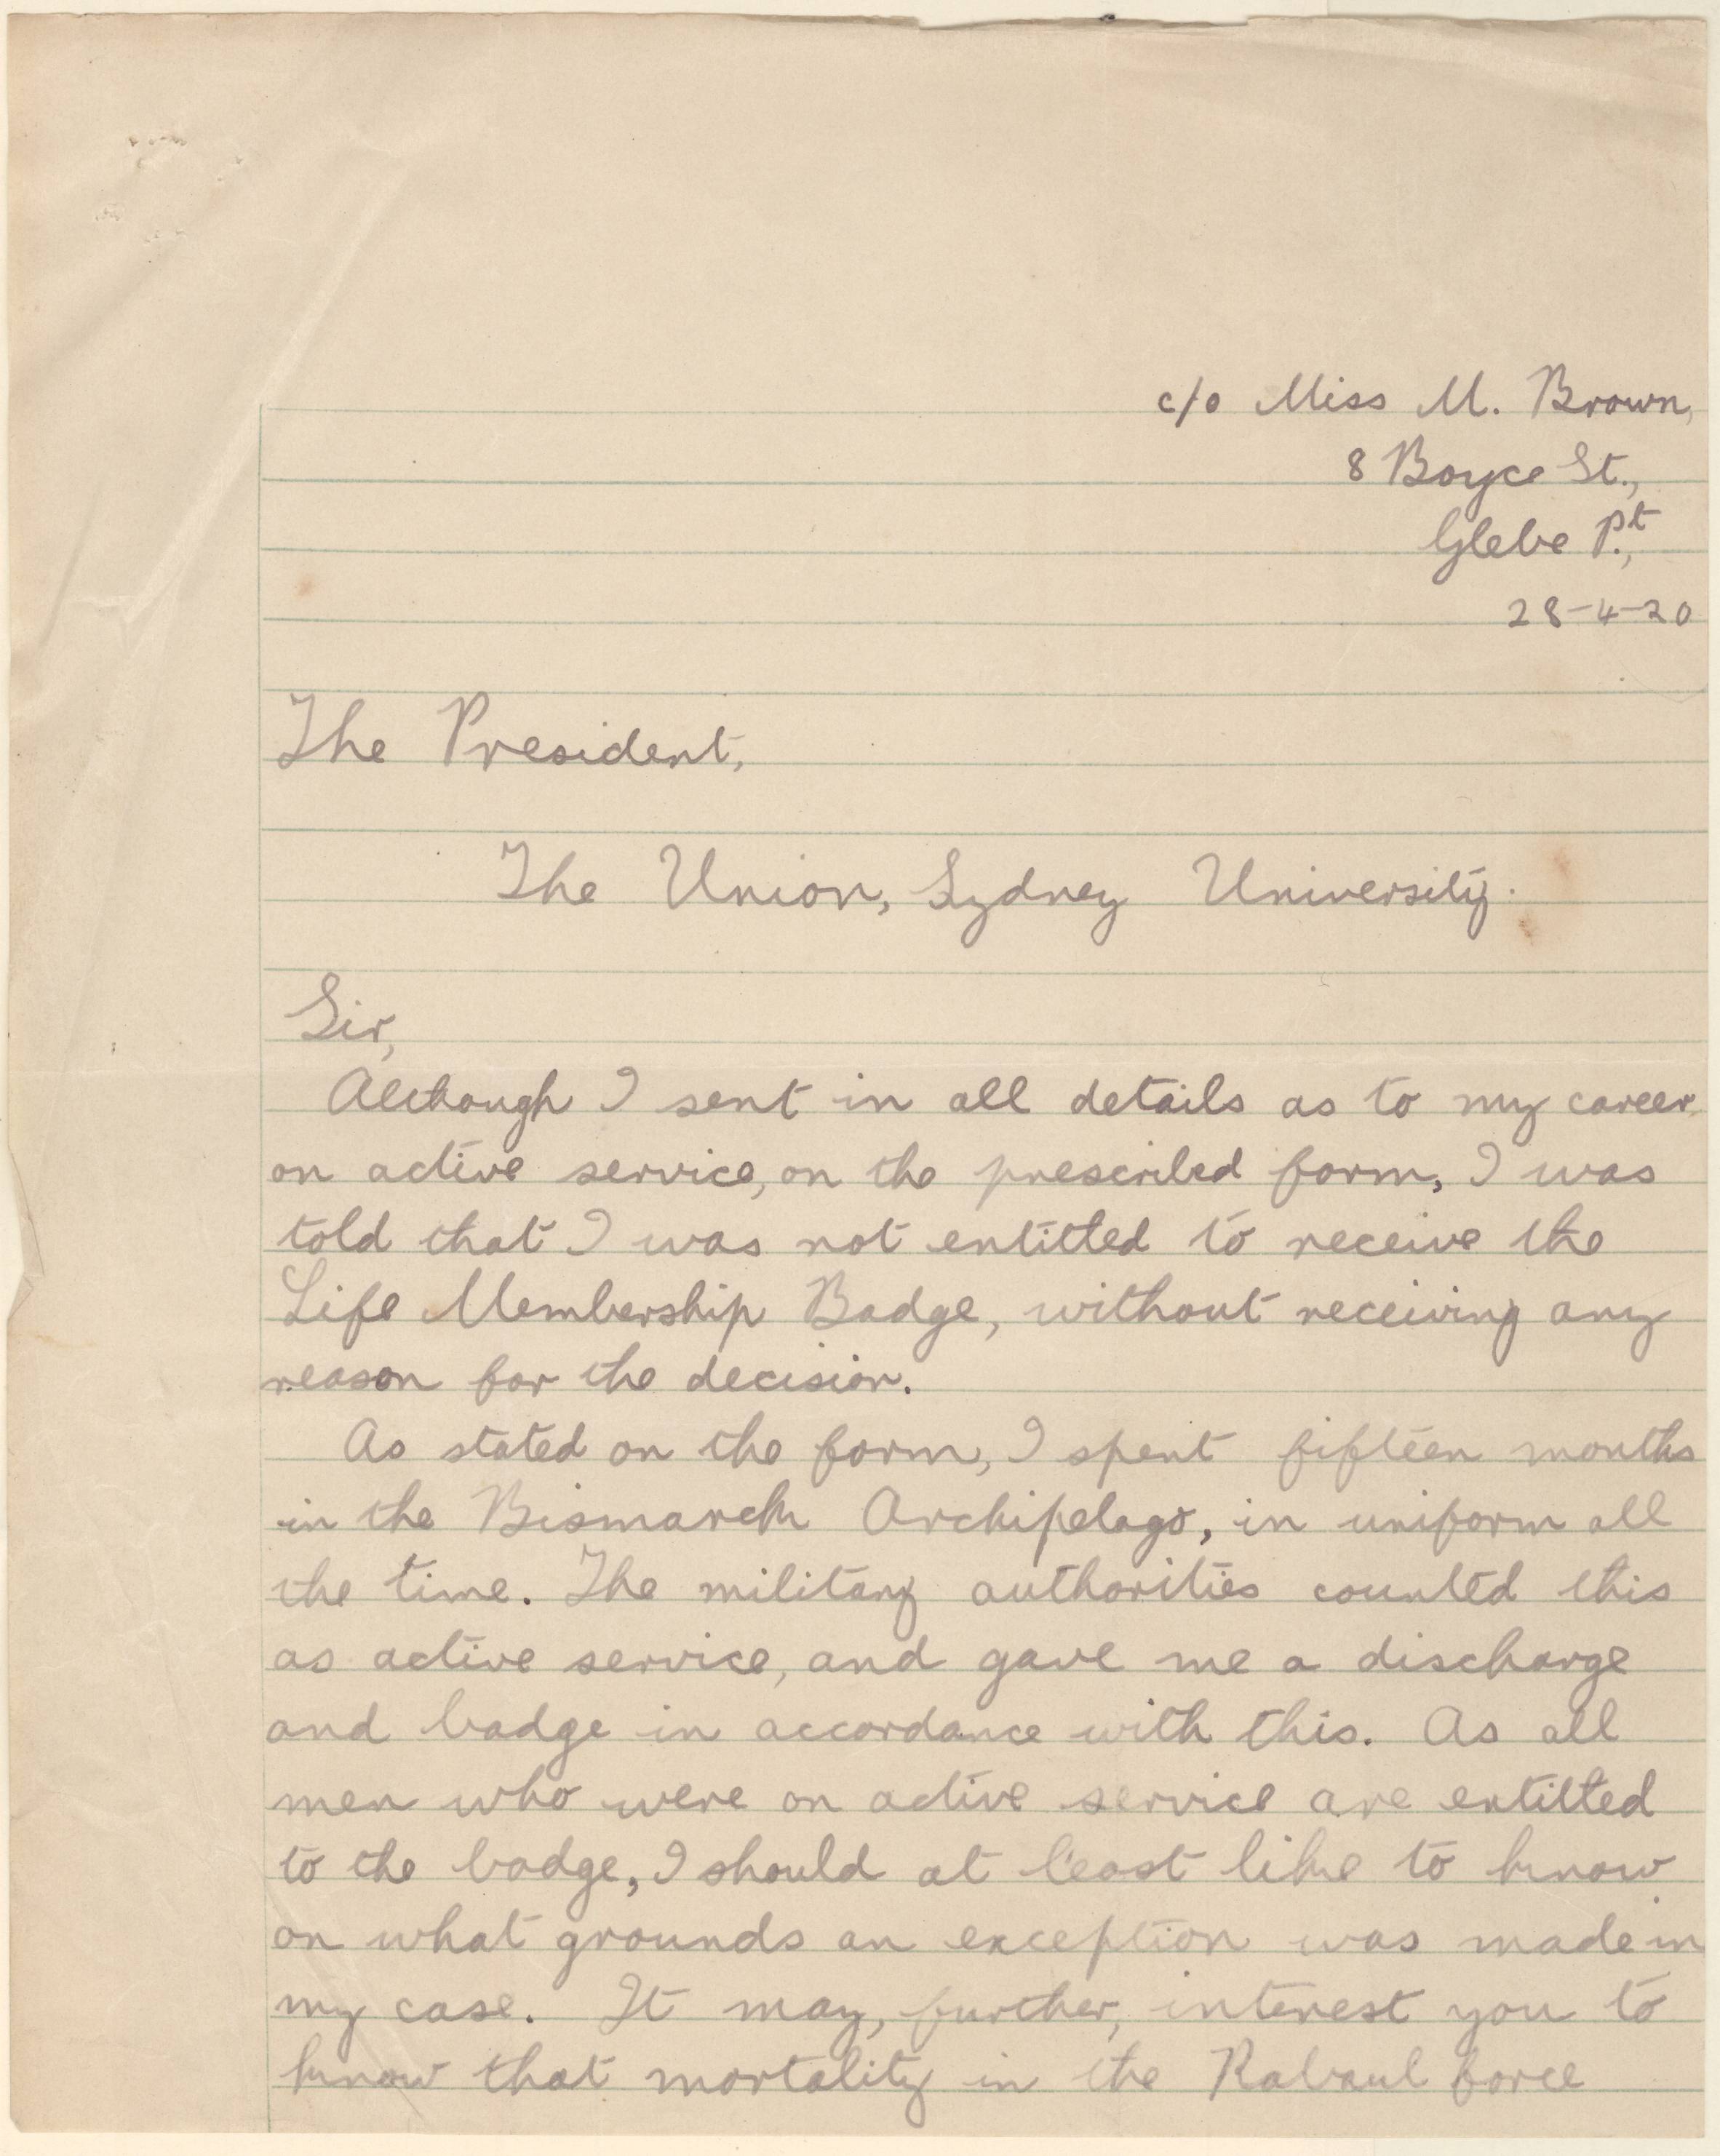 c/o Miss M. Brown,
8 Boyce St.,
Glebe Pt.,
28-4-20
The President,
The Union, Sydney University.
Sir,
Although I sent in all details as to my career
on active service, on the prescribed form, I was
told that I was not entitled to receive the
Life Membership Badge, without receiving any
reason for the decision.
As stated on the form, I spent fifteen months
in the Bismarck Archipelago, in uniform all
the time. The military authorities counted this
as active service, and gave me a discharge
and badge in accordance with this. As all
men who were on active service are entitled
to the badge, I should at least like to know
on what grounds an exception was made in
my case. It may, further, interest you to
know that mortality in the Rabaul force